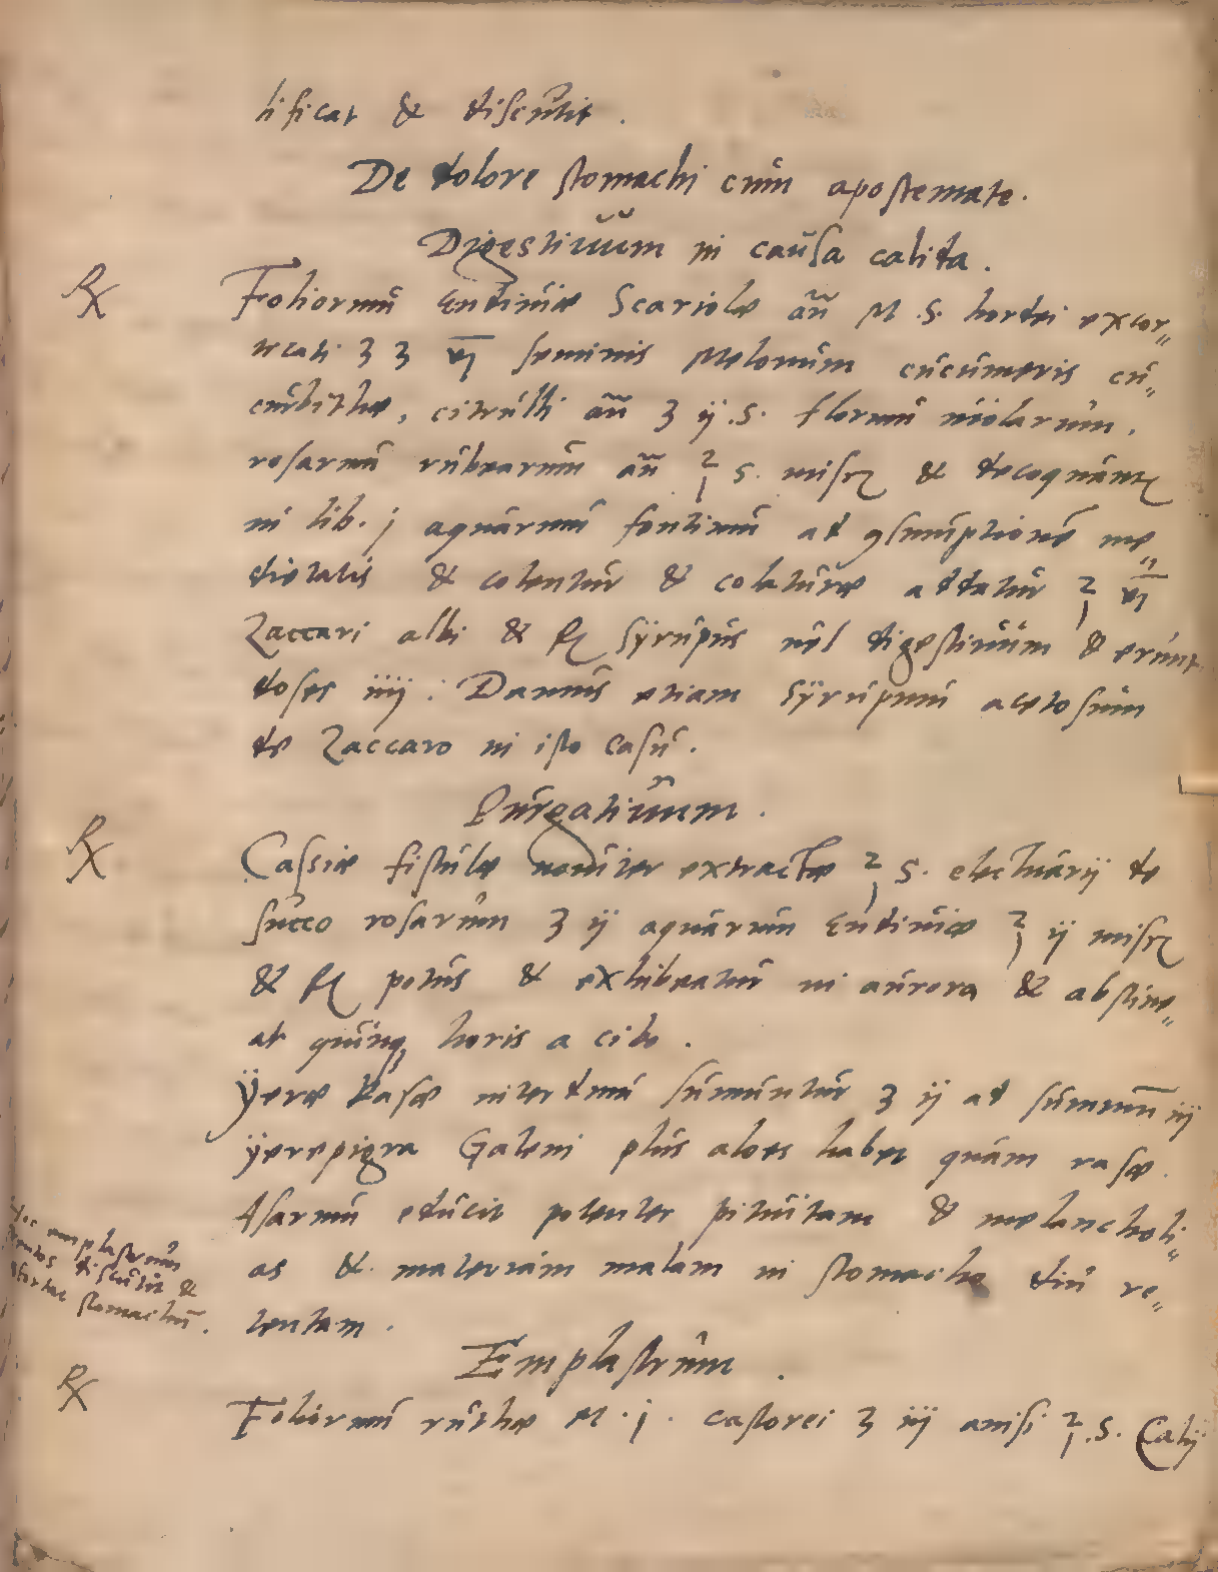 tificat & discutit .
De dolore stomachi cum apostemate .
Digestiuum in causa calida .
℞ Foliorum Endiuiæ Scariolæ añ M . s . hordei excor„
ticati ʒ ʒ vj seminis Melonum cucumeris cu„
curbithæ , citrulli añ ʒ ij . s . florum uiolarum .
rosarum rubearum añ ℥ s . misc & decoquant
in lib . j aquarum fontium ad ꝯsumptionē me„
dietatis & colentur & colaturæ addatur ℥ vj
Zaccari albi & f sÿrupus uel digestiuum & erunt
doses iiij . Damus etiam sÿrupum acetosum
de Zaccaro in isto casu .
Purgatiuum .
℞ Cassiæ fistulæ nouiter extractæ ℥ s . electuarij de
succo rosarum ʒ ij aquarum Endiuiæ ℥ ij misc
& f potus & exhibeatur in aurora & abstine„
at quinq horis a cibo .
ÿeræ Rasæ interdum sumuntur ʒ ij ad summū iij
ÿerepigra Galeni plus aloes habet quam rasæ .
Asarum educit potenter pituitam & melancholi„
as & materiam malam in stomacho diu re„
tentam .
Hoc emplastrum
uentos discutit &
ꝯfortat stomachū .
Emplastrum .
℞ Foliorum ruthæ M . j . castorei ʒ iij anisi ℥ . s . Calij